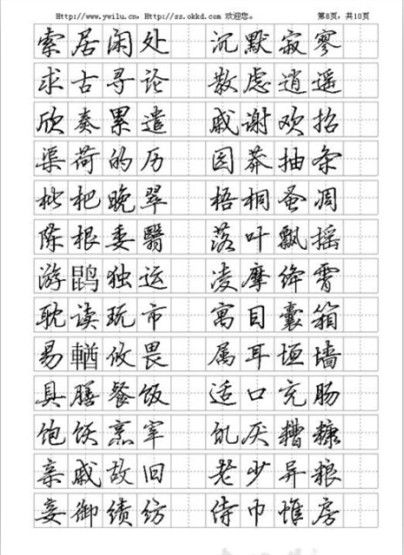 Http://www.ywilu.cn, Http://ss.okkd.com 欢迎您。 第8页, 共10页
索居闲处 沉默寂寥
求古寻论 散虑逍遥
欣奏累遣 戚谢欢招
渠荷的历 园莽抽条
枇杷晚翠 梧桐蚤凋
陈根委翳 落叶飘摇
游鹍独运 凌摩绛霄
耽读玩市 寓目囊箱
易輶攸畏 属耳垣墙
具膳餐饭 适口充肠
饱饫烹宰 饥厌糟糠
亲戚故旧 老少异粮
妾御绩纺 侍巾帷房